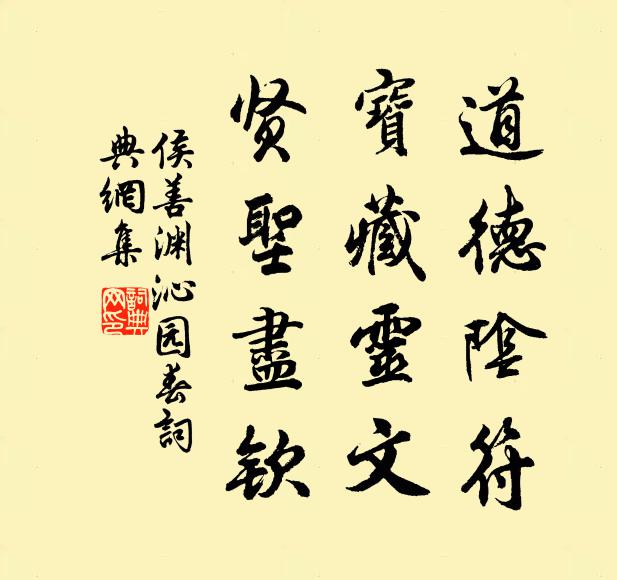 道德陰符
寶藏靈文
贤聖盡欽
侯善渊沁园春詞
典網集
詞典
网印